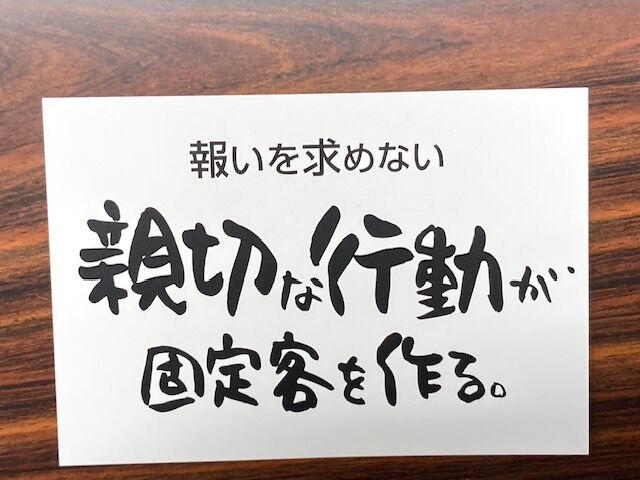 報いを求めない
親切な行動が
固定客を作る。